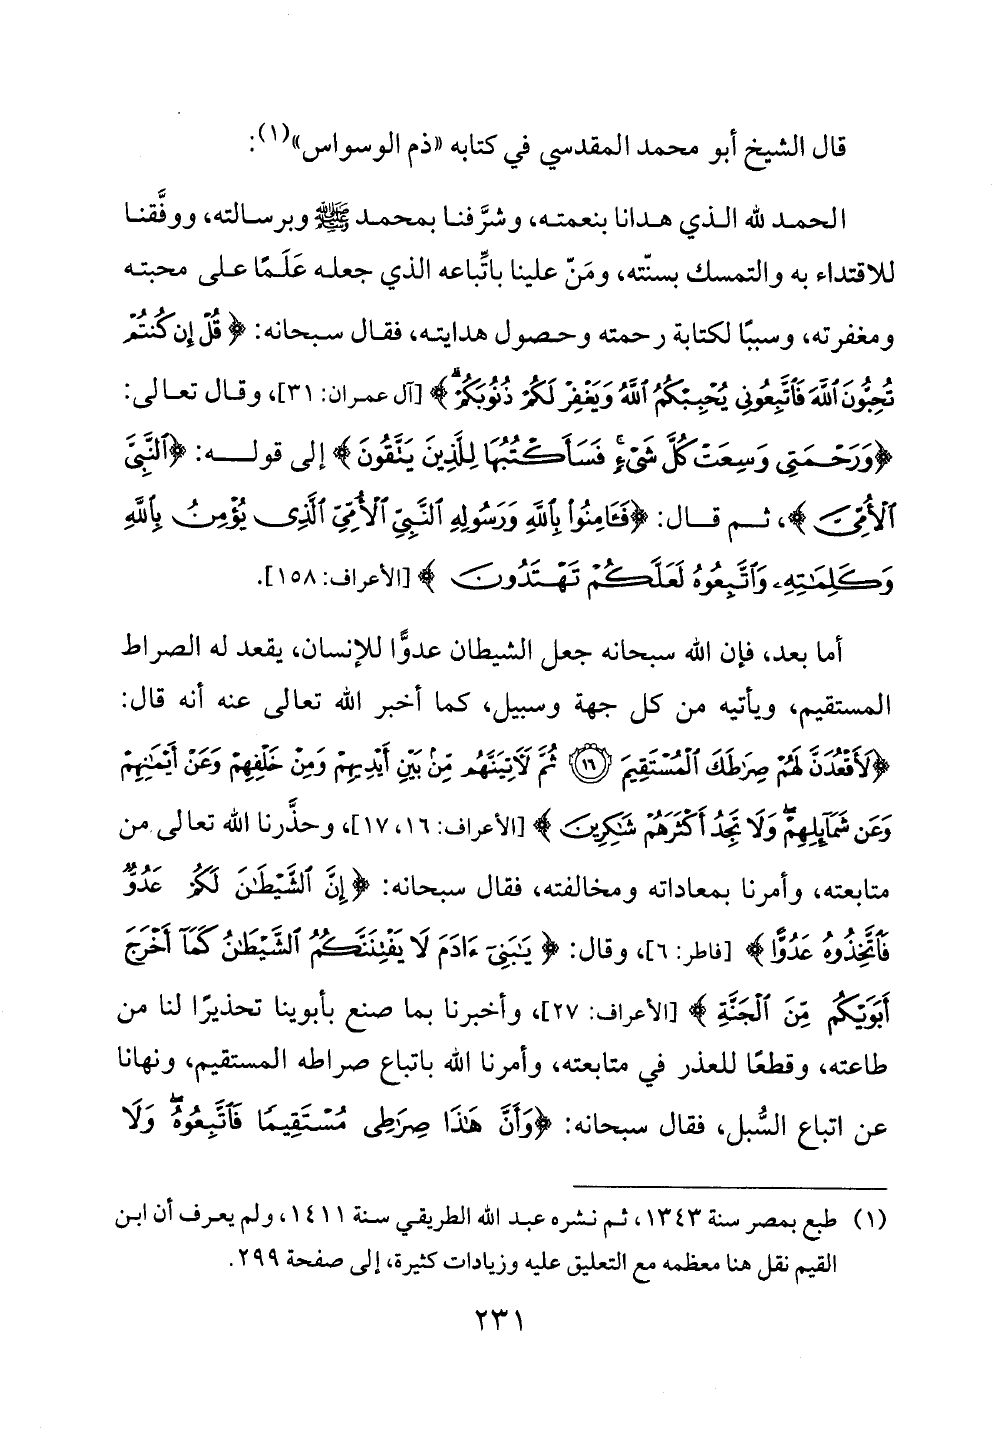 قال الشيخ أبو محمد المقدسي في كتابه «ذم الوسواس»(١):
الحمد لله الذي هدانا بنعمته، وشرَّفنا بمحمد ﷺ وبرسالته، ووفَّقنا
للاقتداء به والتمسك بسنّته، ومَنّ علينا باتِّباعه الذي جعله عَلَمًا على محبته
ومغفرته، وسببًا لكتابة رحمته وحصول هدايته، فقال سبحانه: ﴿قُلْ إِن كُنتُمْ
تُحِبُّونَ ٱللَّهَ فَٱتَّبِعُونِى يُحْبِبْكُمُ ٱللَّهُ وَيَغْفِرْ لَكُمْ ذُنُوبَكُمْ ۗ﴾ [آل عمران: ٣١]، وقال تعالى:
﴿وَرَحْمَتِى وَسِعَتْ كُلَّ شَىْءٍ ۚ فَسَأَكْتُبُهَا لِلَّذِينَ يَتَّقُونَ﴾ إلى قوله: ﴿ٱلنَّبِىَّ
ٱلْأُمِّىَّ﴾، ثم قال: ﴿فَـَٔامِنُوا۟ بِٱللَّهِ وَرَسُولِهِ ٱلنَّبِىِّ ٱلْأُمِّىِّ ٱلَّذِى يُؤْمِنُ بِٱللَّهِ
وَكَلِمَـٰتِهِۦ وَٱتَّبِعُوهُ لَعَلَّكُمْ تَهْتَدُونَ﴾ [الأعراف: ١٥٨].
أما بعد، فإن الله سبحانه جعل الشيطان عدوًّا للإنسان، يقعد له الصراط
المستقيم، ويأتيه من كل جهة وسبيل، كما أخبر الله تعالى عنه أنه قال:
﴿لَأَقْعُدَنَّ لَهُمْ صِرَٰطَكَ ٱلْمُسْتَقِيمَ ﴿١٦﴾ ثُمَّ لَـَٔاتِيَنَّهُم مِّنۢ بَيْنِ أَيْدِيهِمْ وَمِنْ خَلْفِهِمْ وَعَنْ أَيْمَـٰنِهِمْ
وَعَن شَمَآئِلِهِمْ ۖ وَلَا تَجِدُ أَكْثَرَهُمْ شَـٰكِرِينَ﴾ [الأعراف: ١٦، ١٧]، وحذَّرنا الله تعالى من
متابعته، وأمرنا بمعاداته ومخالفته، فقال سبحانه: ﴿إِنَّ ٱلشَّيْطَـٰنَ لَكُمْ عَدُوٌّ
فَٱتَّخِذُوهُ عَدُوًّا﴾ [فاطر: ٦]، وقال: ﴿يَـٰبَنِىٓ ءَادَمَ لَا يَفْتِنَنَّكُمُ ٱلشَّيْطَـٰنُ كَمَآ أَخْرَجَ
أَبَوَيْكُم مِّنَ ٱلْجَنَّةِ﴾ [الأعراف: ٢٧]، وأخبرنا بما صنع بأبوينا تحذيرًا لنا من
طاعته، وقطعًا للعذر في متابعته، وأمرنا الله باتباع صراطه المستقيم، ونهانا
عن اتباع السُّبل، فقال سبحانه: ﴿وَأَنَّ هَـٰذَا صِرَٰطِى مُسْتَقِيمًا فَٱتَّبِعُوهُ ۖ وَلَا
(١) طبع بمصر سنة ١٣٤٣، ثم نشره عبد الله الطريقي سنة ١٤١١، ولم يعرف أن ابن
القيم نقل هنا معظمه مع التعليق عليه وزيادات كثيرة، إلى صفحة ٢٩٩.
٢٣١